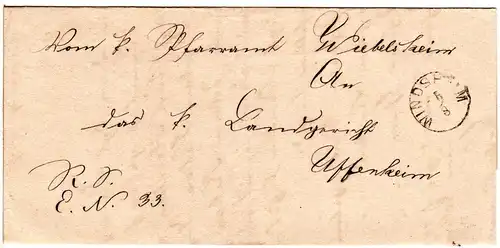 Vom k. Pfarramt Wiebelsheim
An
das k. Landgericht
Uffenheim
R. S.
E. N. 33.
WINDSHEIM